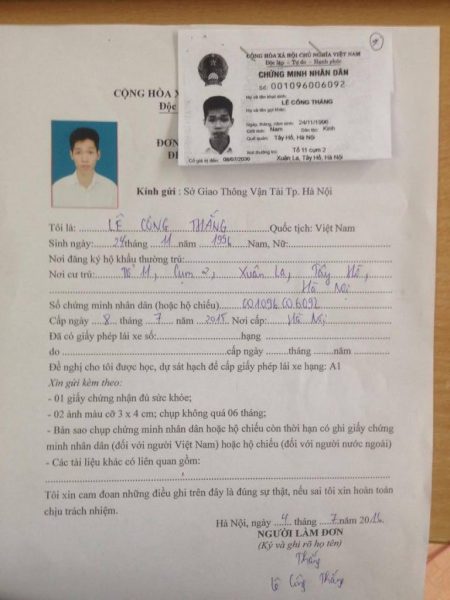 CỘNG HÒA X
Độc
ĐƠN
ĐỀ
CỘNG HÒA XÃ HỘI CHỦ NGHĨA VIỆT NAM
Độc lập - Tự do - Hạnh phúc
CHỨNG MINH NHÂN DÂN
Số: 001096006092
Họ và tên khai sinh:
LÊ CÔNG THẮNG
Họ và tên gọi khác:
Ngày, tháng, năm sinh: 24/11/1996
Giới tính: Nam Dân tộc: Kinh
Quê quán: Tây Hồ, Hà Nội
Nơi thường trú: Tổ 11 cụm 2
Xuân La, Tây Hồ, Hà Nội
Có giá trị đến: 08/07/2030
Kính gửi : Sở Giao Thông Vận Tải Tp. Hà Nội
Tôi là: LÊ CÔNG THẮNG Quốc tịch: Việt Nam
Sinh ngày: 24 tháng 11 năm 1996 Nam, Nữ:
Nơi đăng ký hộ khẩu thường trú:
Nơi cư trú: Tổ 11, Cụm 2, Xuân La, Tây Hồ,
Hà Nội
Số chứng minh nhân dân (hoặc hộ chiếu) 001096006092
Cấp ngày 8 tháng 7 năm 2015 Nơi cấp: Hà Nội
Đã có giấy phép lái xe số: hạng
do cấp ngày tháng năm
Đề nghị cho tôi được học, dự sát hạch để cấp giấy phép lái xe hạng: A1
Xin gửi kèm theo:
- 01 giấy chứng nhận đủ sức khỏe;
- 02 ảnh màu cỡ 3 x 4 cm; chụp không quá 06 tháng;
- Bản sao chụp chứng minh nhân dân hoặc hộ chiếu còn thời hạn có ghi giấy chứng
minh nhân dân (đối với người Việt Nam) hoặc hộ chiếu (đối với người nước ngoài)
- Các tài liệu khác có liên quan gồm:
Tôi xin cam đoan những điều ghi trên đây là đúng sự thật, nếu sai tôi xin hoàn toàn
chịu trách nhiệm.
Hà Nội, ngày 4 tháng 7 năm 2016
NGƯỜI LÀM ĐƠN
(Ký và ghi rõ họ tên)
Thắng
Lê Công Thắng